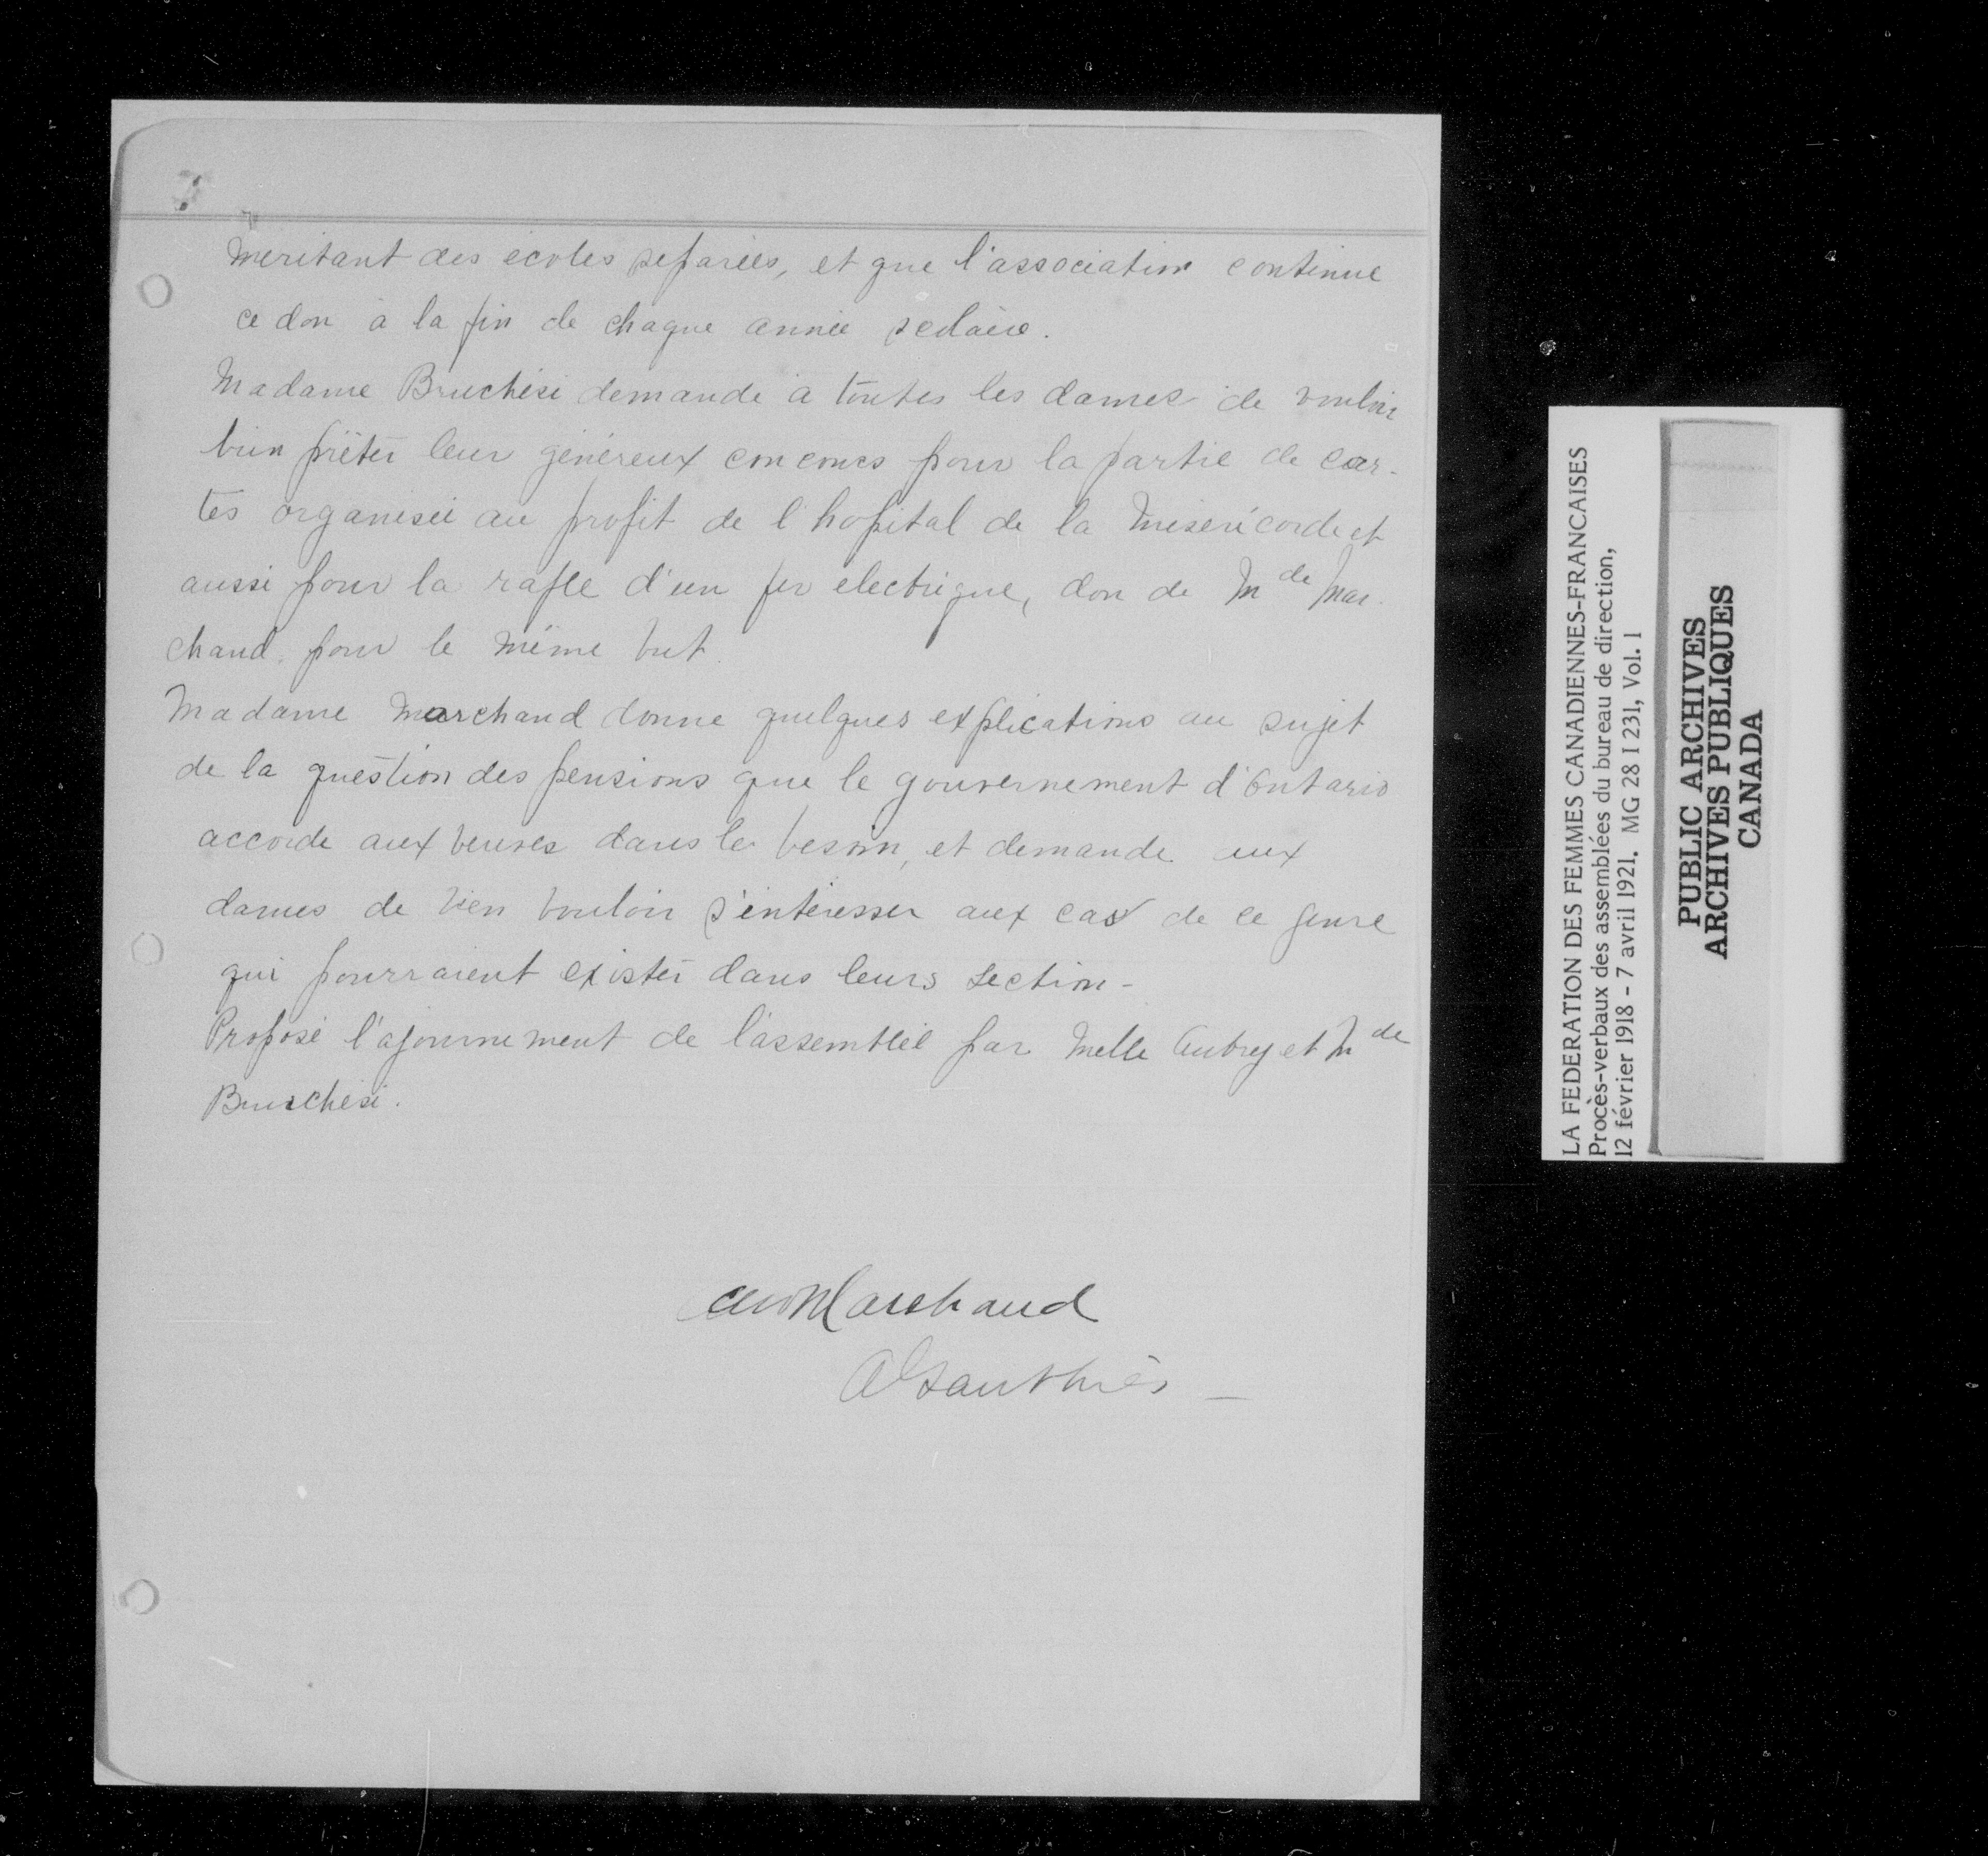 méritant des écoles séparées, et que l'association continue
ce don à la fin de chaque année scolaire.
Madame Bruchési demande à toutes les dames de vouloir
bien prêter leur généreux concours pour la partie de car-
tes organisée au profit de l'hopital de la Miséricorde et
aussi pour la rafle d'un fer electrique, don de Mde Mar-
chand, pour le même but.
Madame Marchand donne quelques explications au sujet
de la question des pensions que le gouvernement d'Ontario
accorde aux veuves dans le besoin, et demande aux
dames de bien vouloir s'intéresser aux cas de ce genre
qui pourraient exister dans leurs section-
Proposé l'ajournement de l'assemblée par Melle Aubrey et Mde
Bruschési.
Marchand
A Gauthier -
LA FEDERATION DES FEMMES CANADIENNES-FRANCAISES
Procès-verbaux des assemblées du bureau de direction,
12 février 1918 - 7 avril 1921. MG 28 I 231, Vol. 1
PUBLIC ARCHIVES
ARCHIVES PUBLIQUES
CANADA